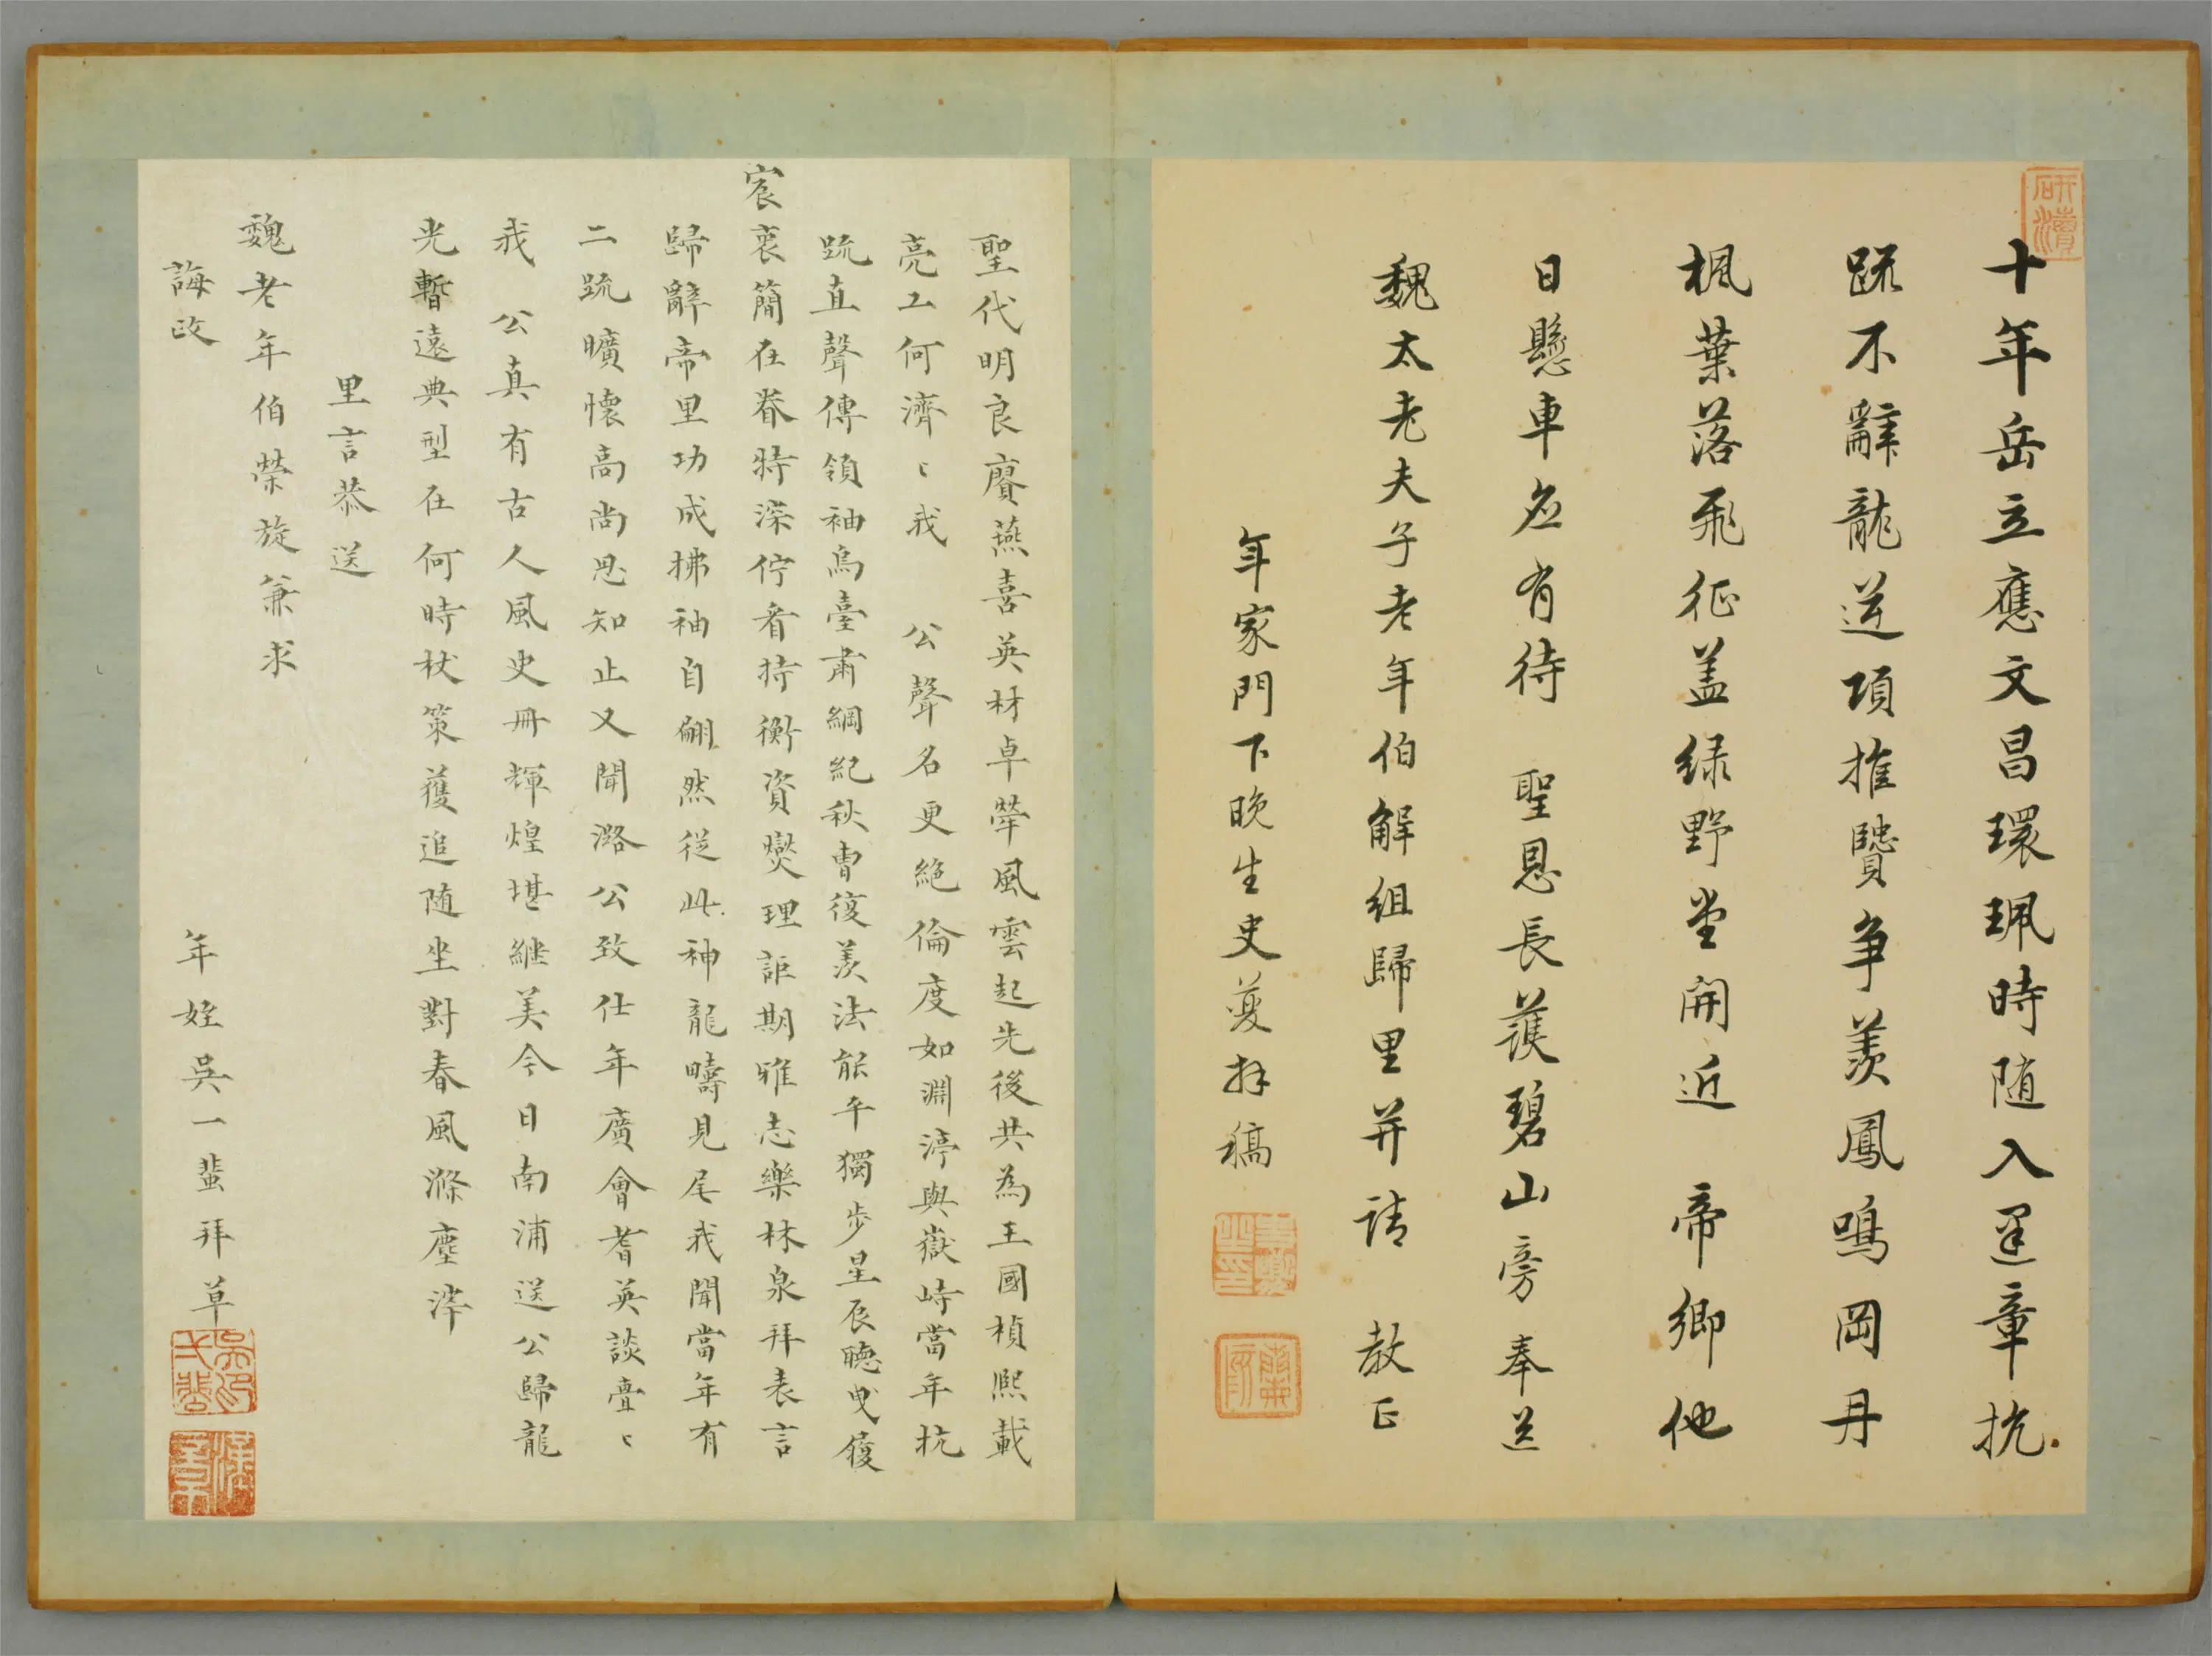 研瀆
十年岳立應文昌環珮時随入選章抗
䟽不辭龍逆項推賢争羡鳳鳴岡丹
楓葉落飛征盖绿野堂開近 帝鄉他
日懸車应有待 聖恩長護碧山旁奉送
魏太老夫子老年伯解组歸里并请 教正
年家門下晚生史夔拜稿
聖代明良賡燕喜英材卓犖風雲起先後共為王國楨熙載
亮工何濟〻我 公聲名更絶倫度如淵渟與嶽峙當年抗
䟽直聲傳領袖烏臺肅綱紀秋曹復羨法能平獨步星辰聴曵履
宸衷簡在眷特深佇看持衡資爕理詎期雅志樂林泉拜表言
歸辭帝里功成拂袖自翩然従此神龍疇見尾我聞當年有
二䟽曠懐高尚思知止又聞潞公致仕年廣會耆英談亹〻
我 公真有古人風史冊輝煌堪継美今日南浦送公歸龍
光暫遠典型在何時杖策獲追随坐對春風滌塵滓
里言恭送
魏老年伯榮旋兼求
誨政
年姪吳一蜚拜草